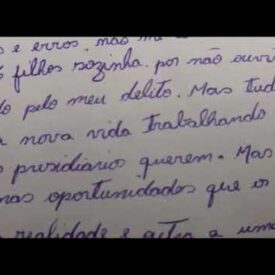 s e erros, não me
filhos sozinha. por não ouvi
do pelo meu delito. Mas tud
a nova vida trabalhando
presidiarios querem. Mas
mas oportunidados que os
realidade e outra a uma